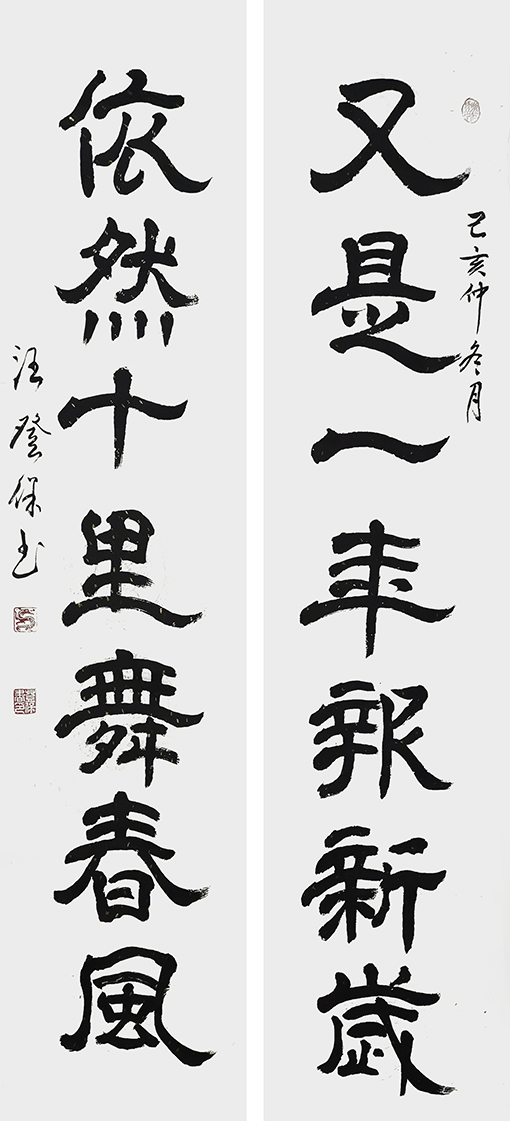 己亥仲冬月
又是一年報新歲
依然十里舞春風
汪登保书